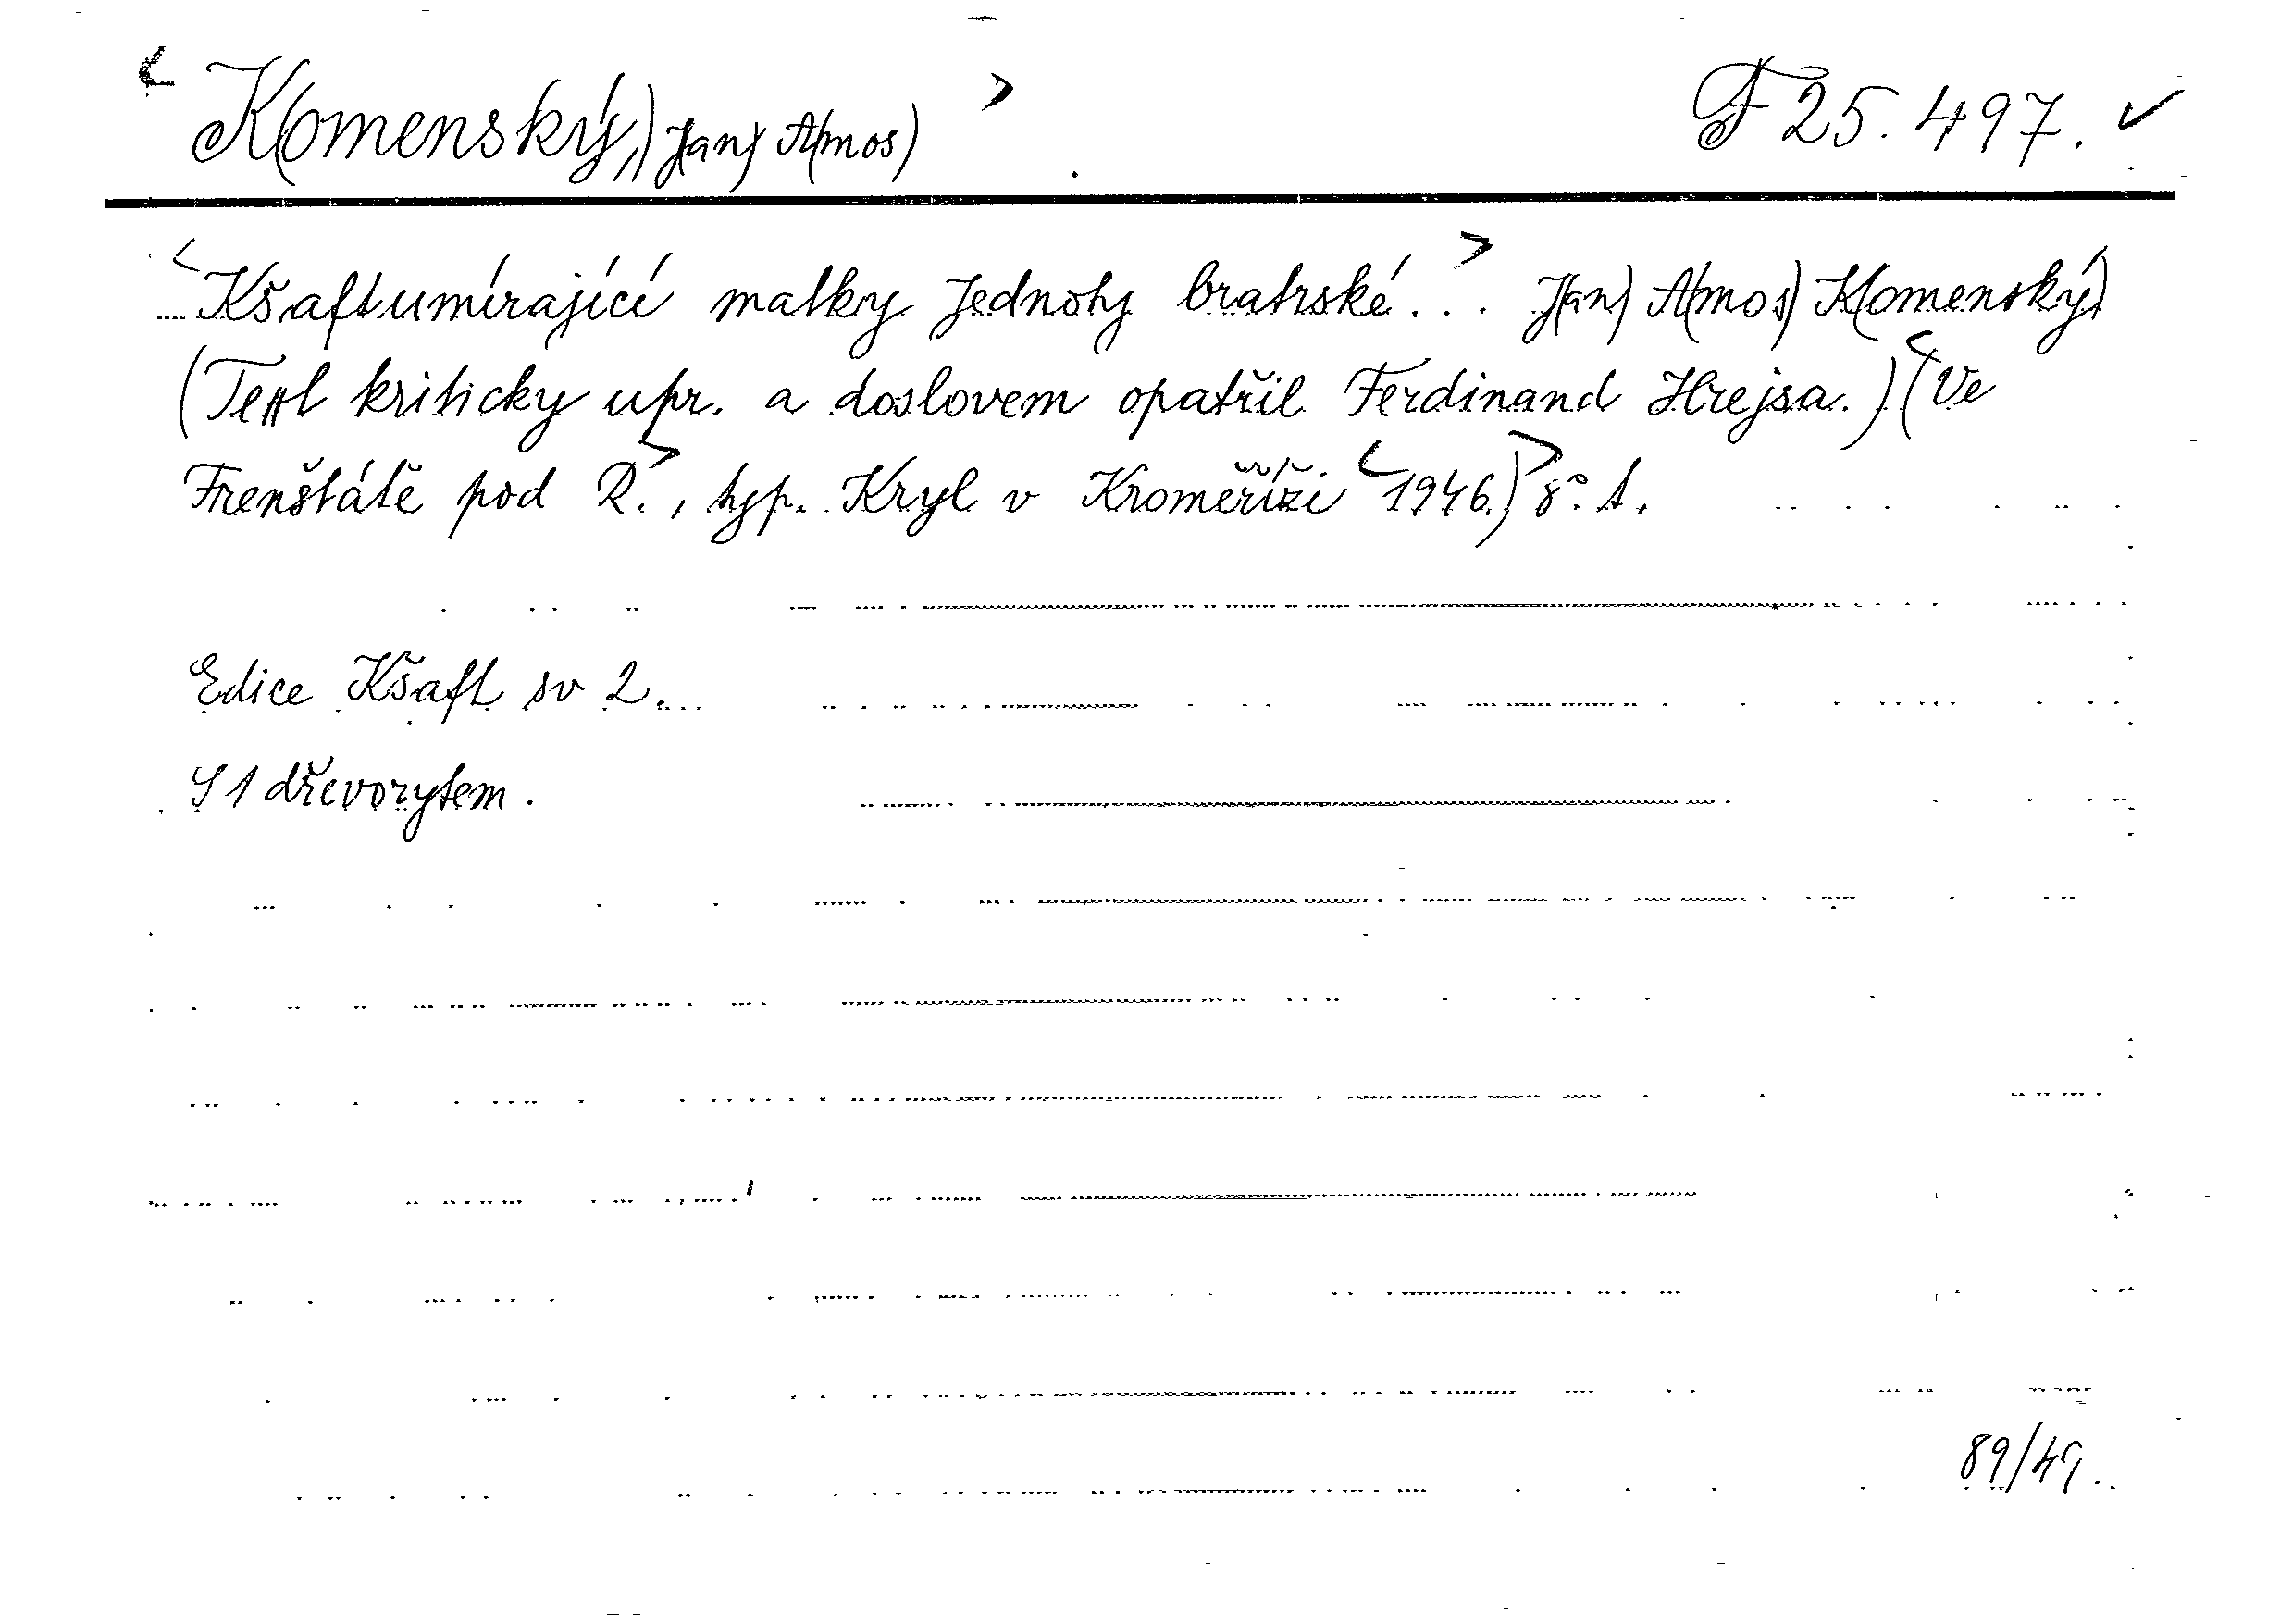 < K(omenský,) J(an) A(mos) > F 25.497. ✓
<Kšaft umírající matky Jednoty bratrské...> J(an) A(mos) K(omenský)
(Text kriticky upr. a doslovem opatřil Ferdinand Hrejsa.) <(Ve
Frenštátě pod R.>, typ. Kryl v Kroměříži <1946.)> 8°. t.
Edice Kšaft sv 2.
S 1 dřevorytem.
89/49.